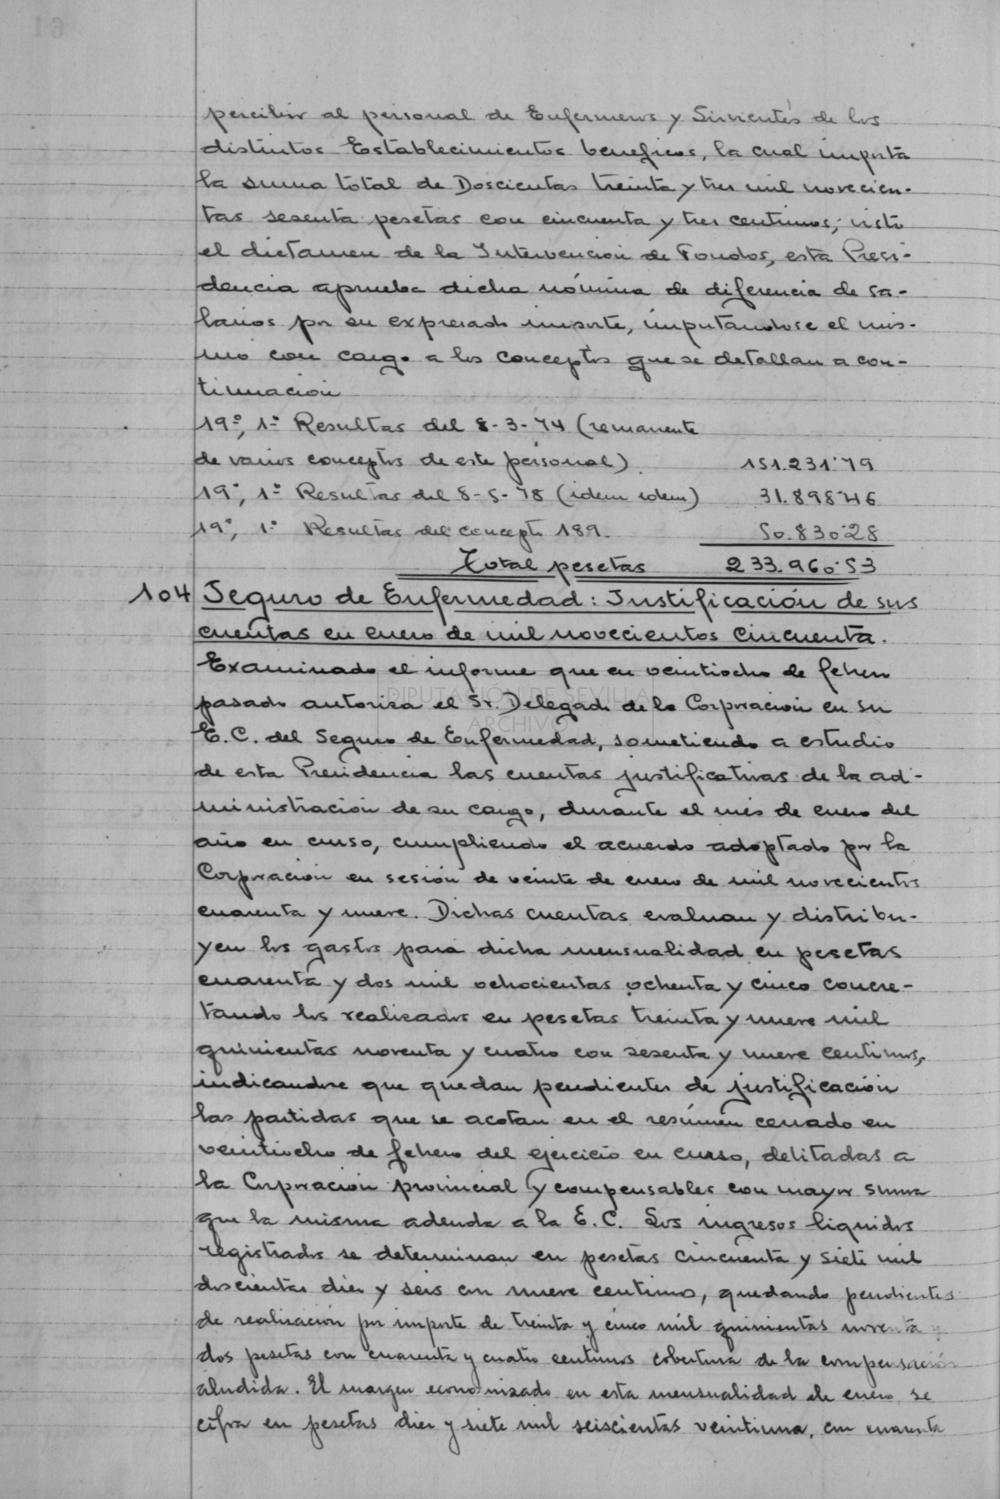 percibir al personal de Enfermeros y Sirvientes de los
distintos Establecimientos beneficos, la cual importa
la suma total de Doscientas treinta y tres mil novecien-
tas sesenta pesetas con cincuenta y tres centimos; visto
el dictamen de la Intervencion de Fondos, esta Presi-
dencia aprueba dicha nómina de diferencia de sa-
larios por su expresado importe, imputandose el mis-
mo con cargo a los conceptos que se detallan a con-
tinuacion
19º, 1º Resultas del 8-3-74 (remanente
de varios conceptos de este personal) 151.231'79
19º, 1º Resultas del 8-5-78 (idem idem) 31.898'46
19º, 1º Resultas del concepto 189. 50.830'28
Total pesetas 233.960'53
104 Seguro de Enfermedad: Justificación de sus
cuentas en enero de mil novecientos cincuenta.
Examinado el informe que en veintiocho de febrero
pasado autoriza el Sr. Delegado de la Corporacion en su
E.C. del Seguro de Enfermedad, sometiendo a estudio
de esta Presidencia las cuentas justificativas de la ad-
ministracion de su cargo, durante el mes de enero del
año en curso, cumpliendo el acuerdo adoptado por la
Corporacion en sesión de veinte de enero de mil novecientos
cuarenta y nueve. Dichas cuentas evaluan y distribu-
yen los gastos para dicha mensualidad en pesetas
cuarenta y dos mil ochocientas ochenta y cinco concre-
tando los realizados en pesetas treinta y nueve mil
quinientas noventa y cuatro con sesenta y nueve centimos,
indicandose que quedan pendientes de justificación
las partidas que se acotan en el resúmen cerrado en
veintiocho de febrero del ejercicio en curso, debitadas a
la Corporacion provincial y compensables con mayor suma
que la misma adeuda a la E.C. Los ingresos liquidos
registrados se determinan en pesetas cincuenta y siete mil
doscientas diez y seis con nueve centimos, quedando pendientes
de realizacion por importe de treinta y cinco mil quinientas noventa y
dos pesetas con cuarenta y cuatro centimos cobertura de la compensación
aludida. El margen economizado en esta mensualidad de enero, se
cifra en pesetas diez y siete mil seiscientas veintiuna, con cuarenta
DIPUTACIÓN DE SEVILLA
ARCHIVO